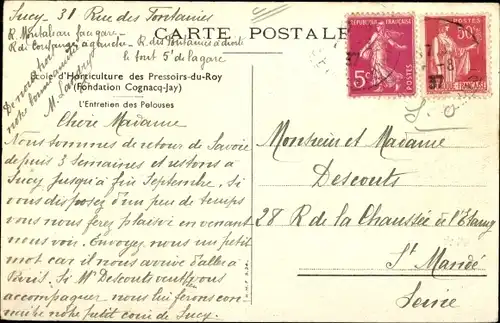 Sucy - 31 Rue des Fontaines
R. Montaleau
R. des Fontaines à droite
le tout 5' de la gare
CARTE POSTALE
École d'Horticulture des Pressoirs-du-Roy
(Fondation Cognacq-Jay)
L'Entretien des Pelouses
Chère Madame
Nous sommes de retour de Savoie
depuis 3 semaines et restons à
Sucy jusqu'à fin Septembre. Si
vous disposez d'un peu de temps
vous nous ferez plaisir en venant
nous voir. Envoyez nous un petit
mot car il nous arrive d'aller à
Paris. Si Mr Descouts veut bien vous
accompagner nous lui ferons con-
naître notre petit coin de Sucy.
RÉPUBLIQUE FRANÇAISE
5c
POSTES
50c
POSTES
RÉPUBLIQUE FRANÇAISE
7
-8
37
Monsieur et Madame
Descouts
28 R de la Chaussée de l'Etang
St Mandé
Seine